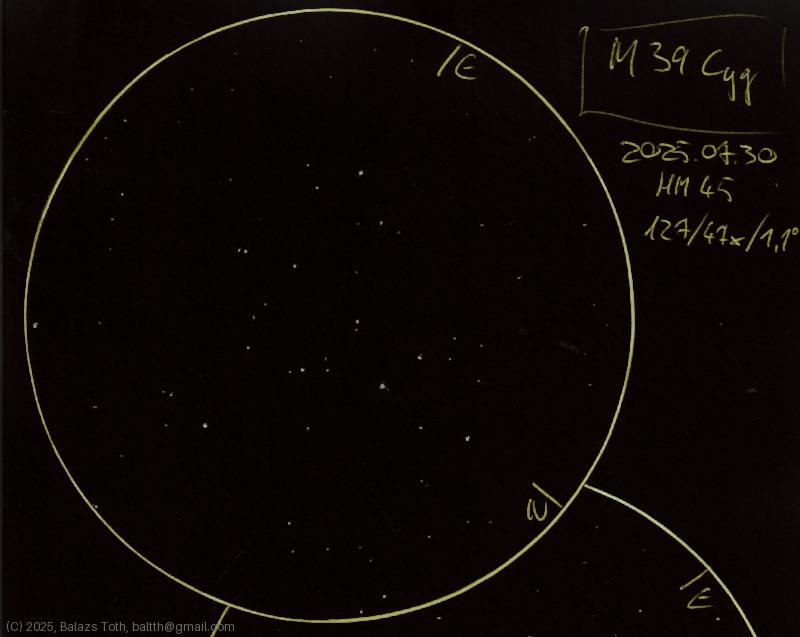 M 39 Cyg
2025.07.30
HM 45
127/47x/1,1°
E
N
E
(C) 2025, Balazs Toth, baltth@gmail.com